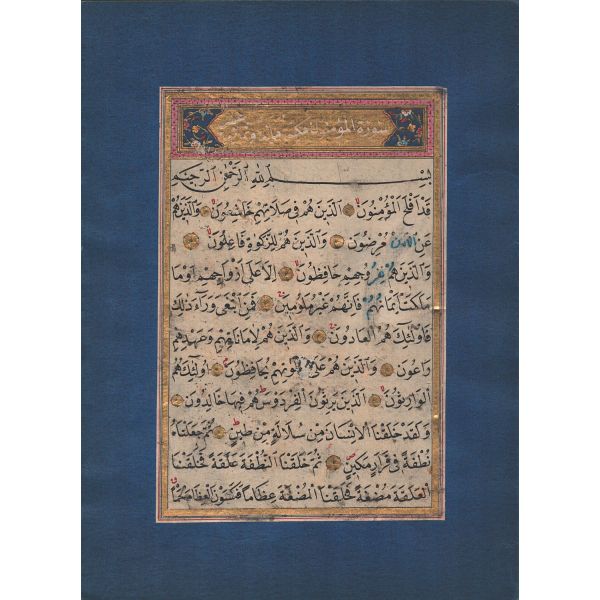 سورة المؤمنون مكية مائة
بِسْمِ اللهِ الرَّحْمٰنِ الرَّحِيمِ
قَدْ أَفْلَحَ الْمُؤْمِنُونَ الَّذِينَ هُمْ فِي صَلَاتِهِمْ خَاشِعُونَ وَالَّذِينَ هُمْ
عَنِ اللَّغْوِ مُعْرِضُونَ وَالَّذِينَ هُمْ لِلزَّكٰوةِ فَاعِلُونَ
وَالَّذِينَ هُمْ لِفُرُوجِهِمْ حَافِظُونَ اِلَّا عَلٰى اَزْوَاجِهِمْ اَوْ مَا
مَلَكَتْ اَيْمَانُهُمْ فَاِنَّهُمْ غَيْرُ مَلُومِينَ فَمَنِ ابْتَغٰى وَرَآءَ ذٰلِكَ
فَاُولٰئِكَ هُمُ الْعَادُونَ وَالَّذِينَ هُمْ لِاَمَانَاتِهِمْ وَعَهْدِهِمْ
رَاعُونَ وَالَّذِينَ هُمْ عَلٰى صَلَوَاتِهِمْ يُحَافِظُونَ اُولٰئِكَ هُمُ
الْوَارِثُونَ الَّذِينَ يَرِثُونَ الْفِرْدَوْسَ هُمْ فِيهَا خَالِدُونَ
وَلَقَدْ خَلَقْنَا الْاِنْسَانَ مِنْ سُلَالَةٍ مِنْ طِينٍ ثُمَّ جَعَلْنَاهُ
نُطْفَةً فِي قَرَارٍ مَكِينٍ ثُمَّ خَلَقْنَا النُّطْفَةَ عَلَقَةً فَخَلَقْنَا
الْعَلَقَةَ مُضْغَةً فَخَلَقْنَا الْمُضْغَةَ عِظَامًا فَكَسَوْنَا الْعِظَامَ لَحْمًا